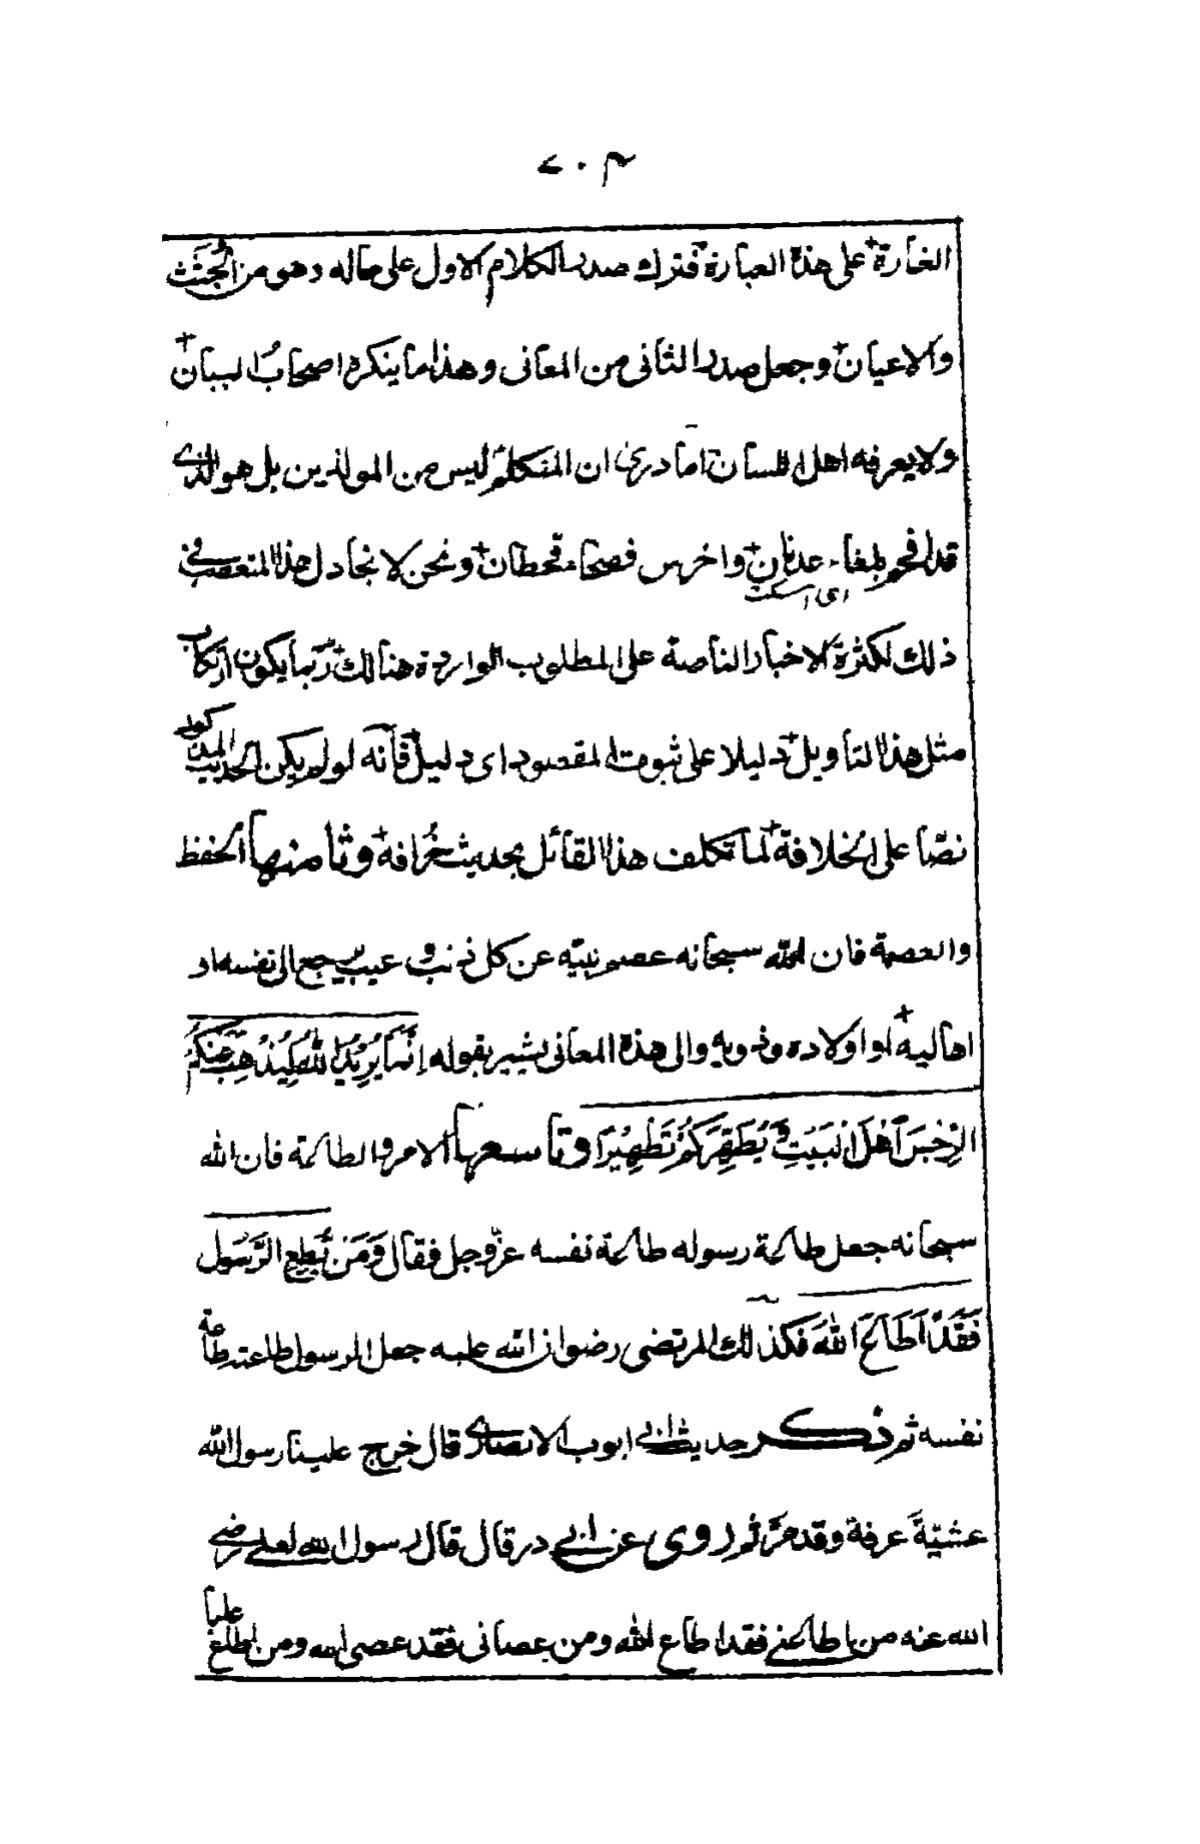 ٧٠٣
الغارة على هذه العبارة فترك صدر الكلام الاول على حاله وهو من الجثث
والاعيان وجعل صدر الثانى من المعانى وهذا ما ينكره اصحابُ البيان
ولا يعرفه اهل اللسان اما درى ان المتكلم ليس من المولدين بل هو الذى
قد افحم بلغاء عدنان واخرس فصحاء قحطان ونحن لا نجادل هذا المتعصب فى
اى اسكت
ذلك لكثرة الاخبار الناصة على المطلوب الواردة هنالك ربما يكون ارتكاب
مثل هذا التاويل دليلا على ثبوت المقصود اى دليل فانه لو لم يكن الحديث
نصّا على الخلافة لما تكلف هذا القائل بحديث خُرافه وثامنها الحفظ
والعصمة فان الله سبحانه عصم نبيّه عن كل ذنب وعيب يرجع الى نفسه او
اهاليه او اولاده وذويه والى هذه المعانى يشير بقوله اِنَّمَا يُرِيْدُ اللهُ لِيُذْهِبَ عَنْكُمُ
الرِّجْسَ اَهْلَ الْبَيْتِ وَ يُطَهِّرَكُمْ تَطْهِيْرًا وتاسعها الامر والطاعة فان الله
سبحانه جعل طاعة رسوله طاعة نفسه عزّوجل فقال وَمَنْ يُّطِعِ الرَّسُوْلَ
فَقَدْ اَطَاعَ اللهَ فكذلك المرتضى رضوان الله عليه جعل الرسول طاعته طاعة
نفسه ثم ذكر حديث ابى ايوب الانصارى قال خرج علينا رسول الله
عشيّةَ عرفة وقد مرّ ثم روى عن ابى ذر قال قال رسول الله لعلى رضى
الله عنه من اطاعنى فقد اطاع الله ومن عصانى فقد عصى الله ومن اطاع علياً